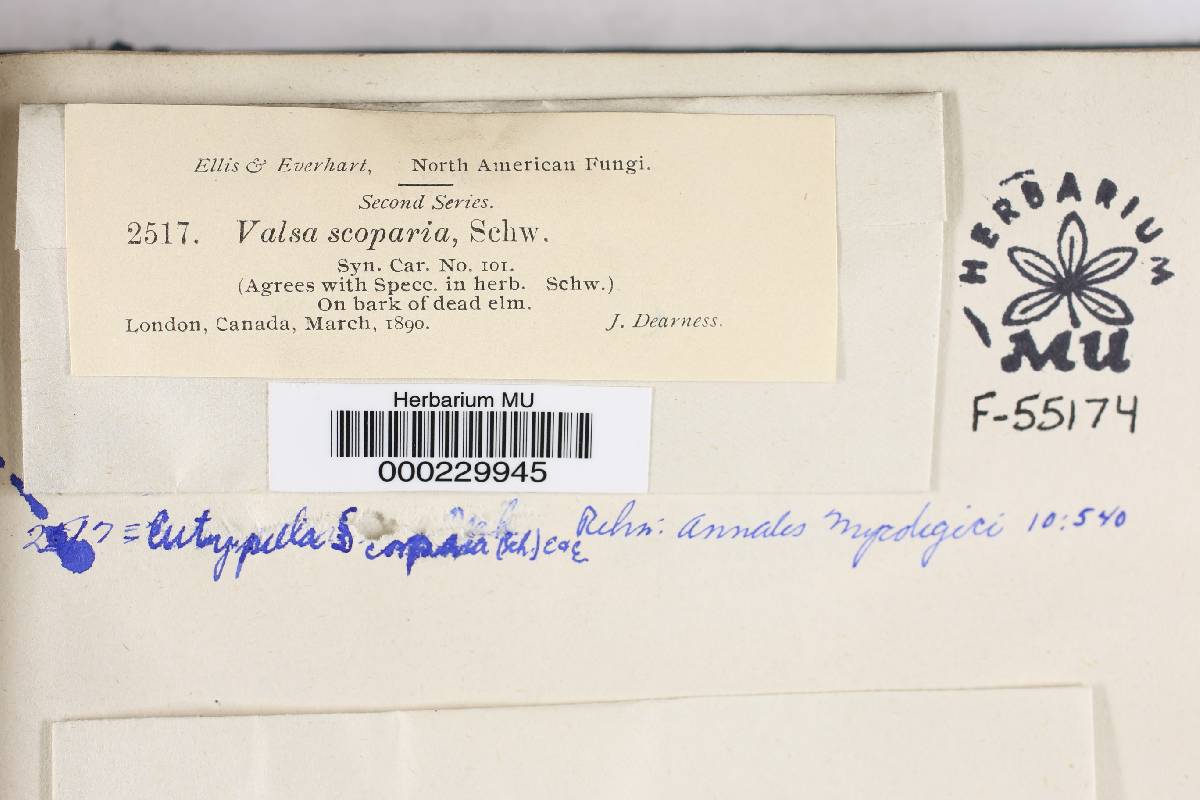 Ellis & Everhart, North American Fungi.
Second Series.
2517. Valsa scoparia, Schw.
Syn. Car. No. 101.
(Agrees with Specc. in herb. Schw.)
On bark of dead elm.
London, Canada, March, 1890. J. Dearness.
HERBARIUM
MU
F-55174
Herbarium MU
000229945
2517 = Eutypella Scoparia (Sch.) E & E Rehm: Annales Mycologici 10:540